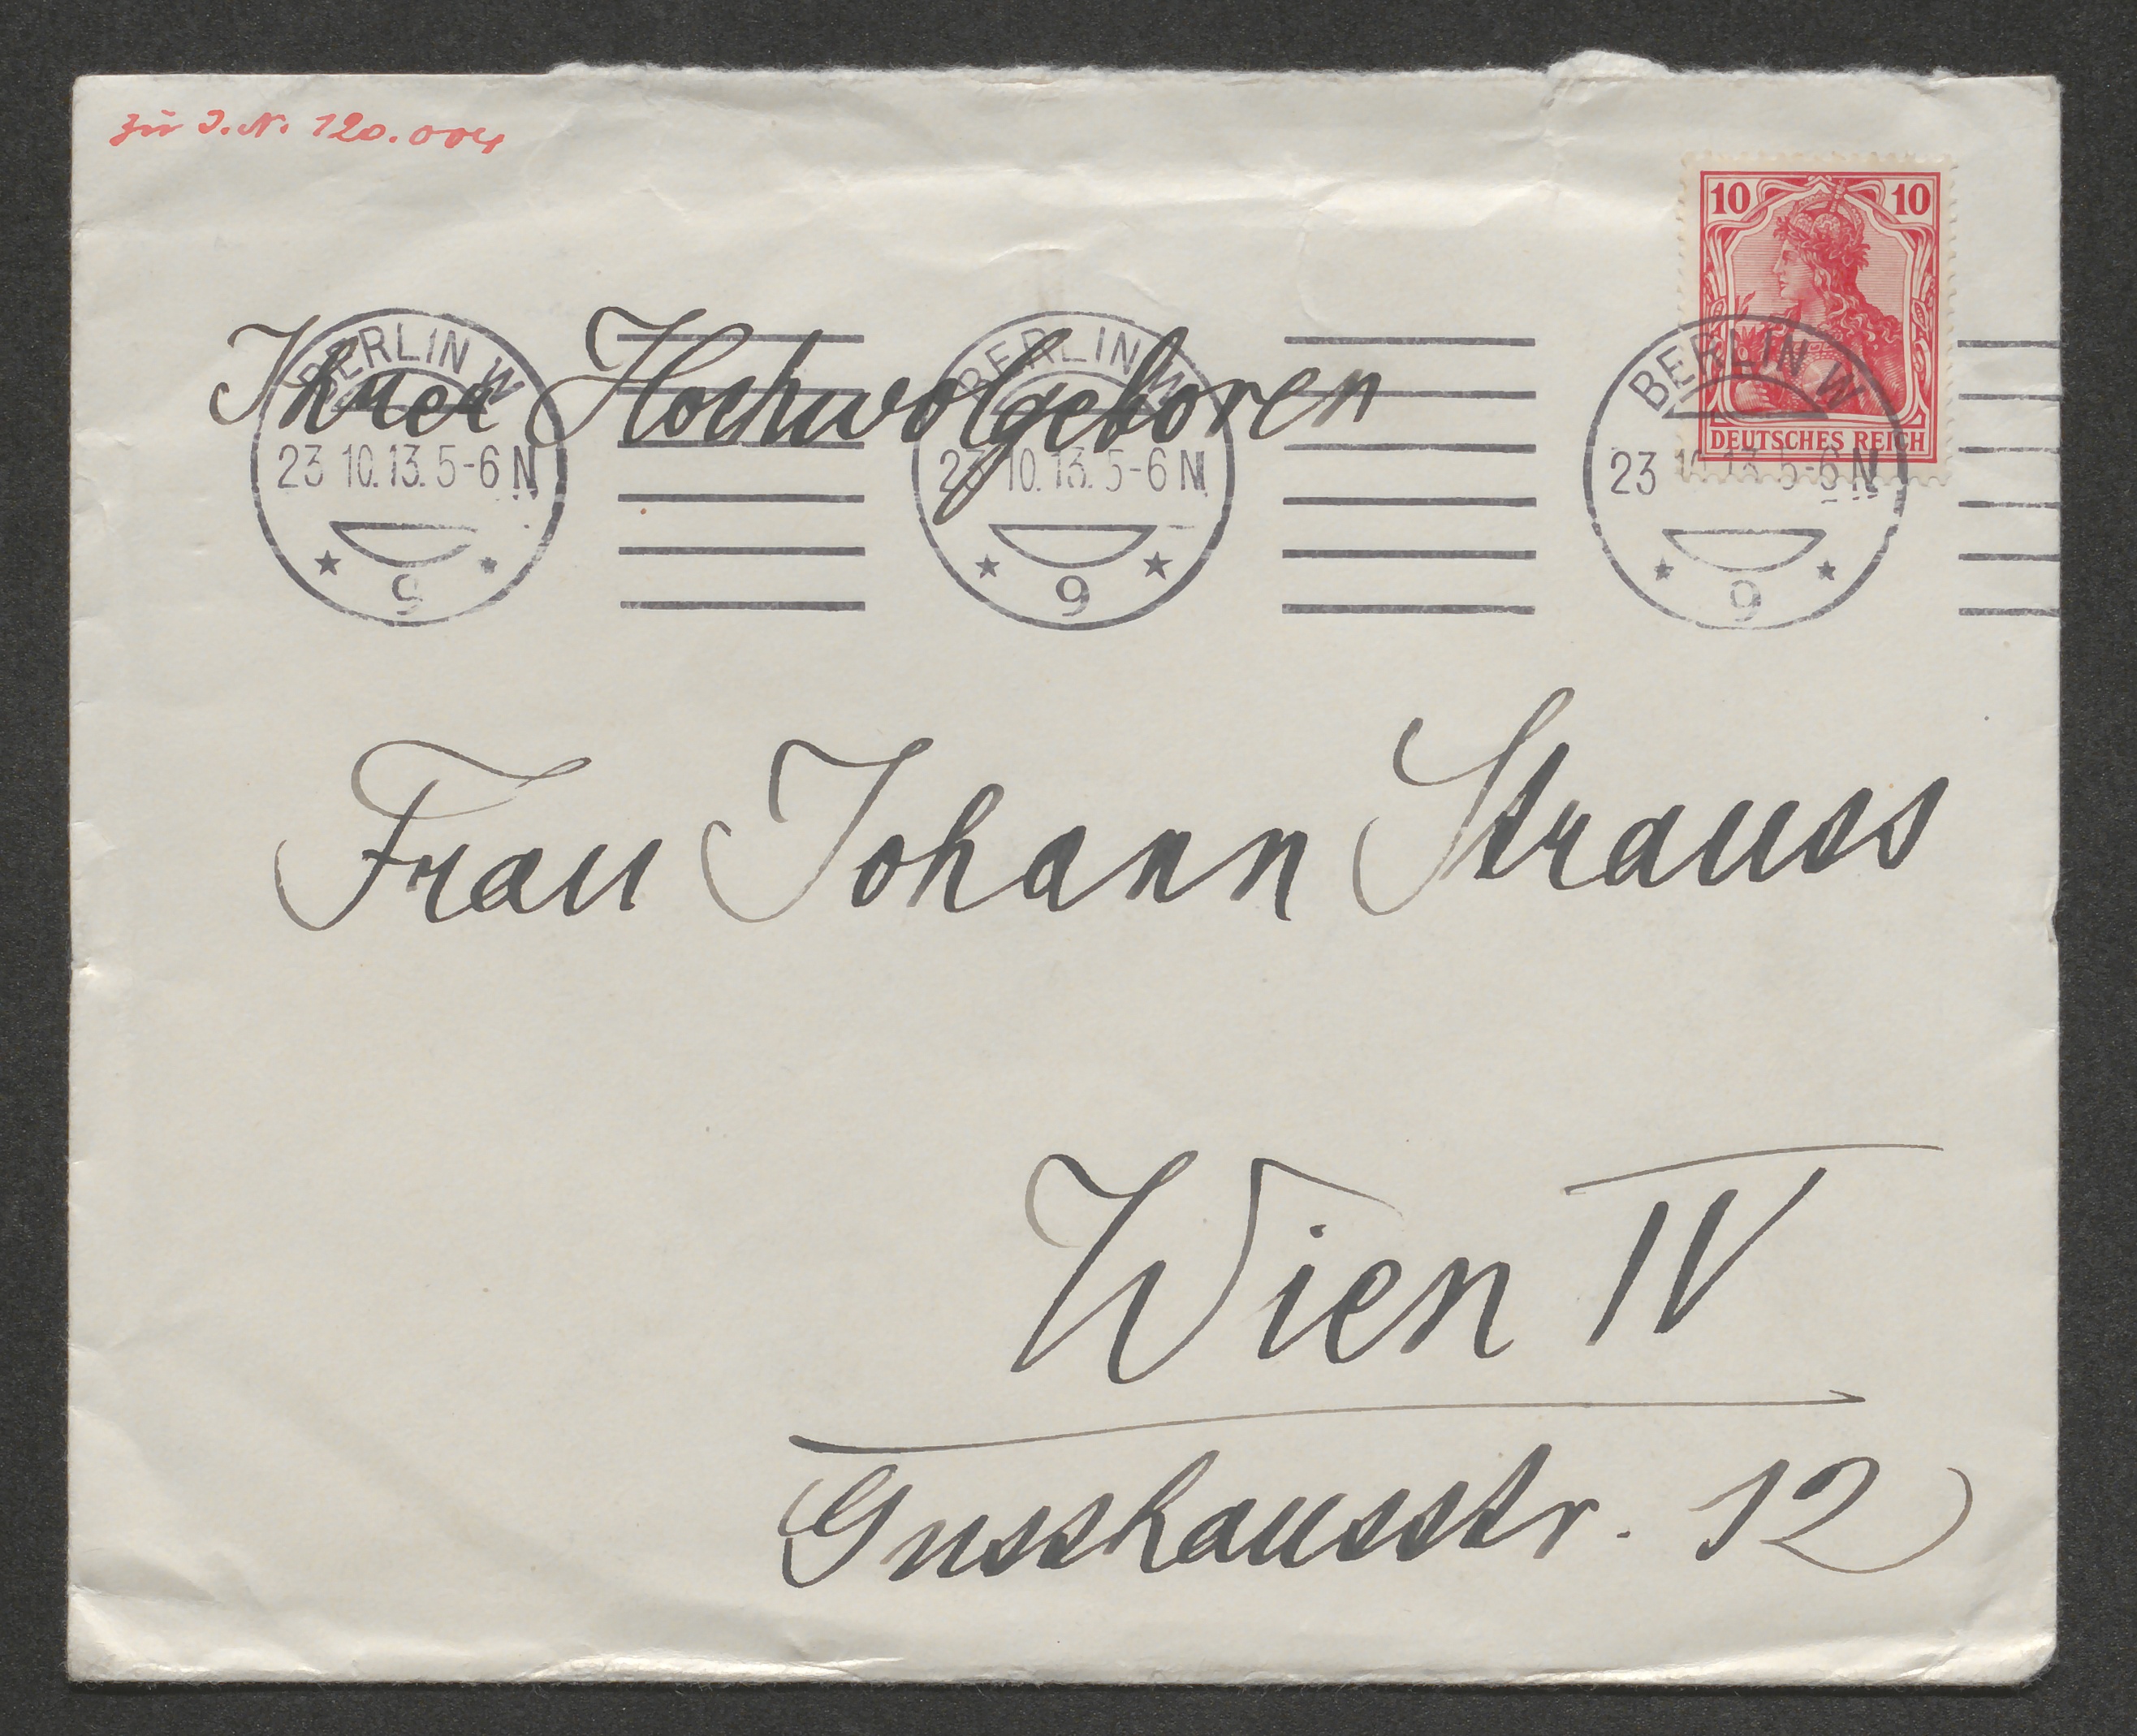 zu I.N. 120.004
10 10
DEUTSCHES REICH
BERLIN W BERLIN W BERLIN W
Ihrer Hochwolgeboren
23 10.13. 5-6 N 23 10.13. 5-6 N 23 10.13. 5-6 N
* 9 * * 9 * * 9 *
Frau Johann Strauss
Wien IV
Gusshausstr. 12